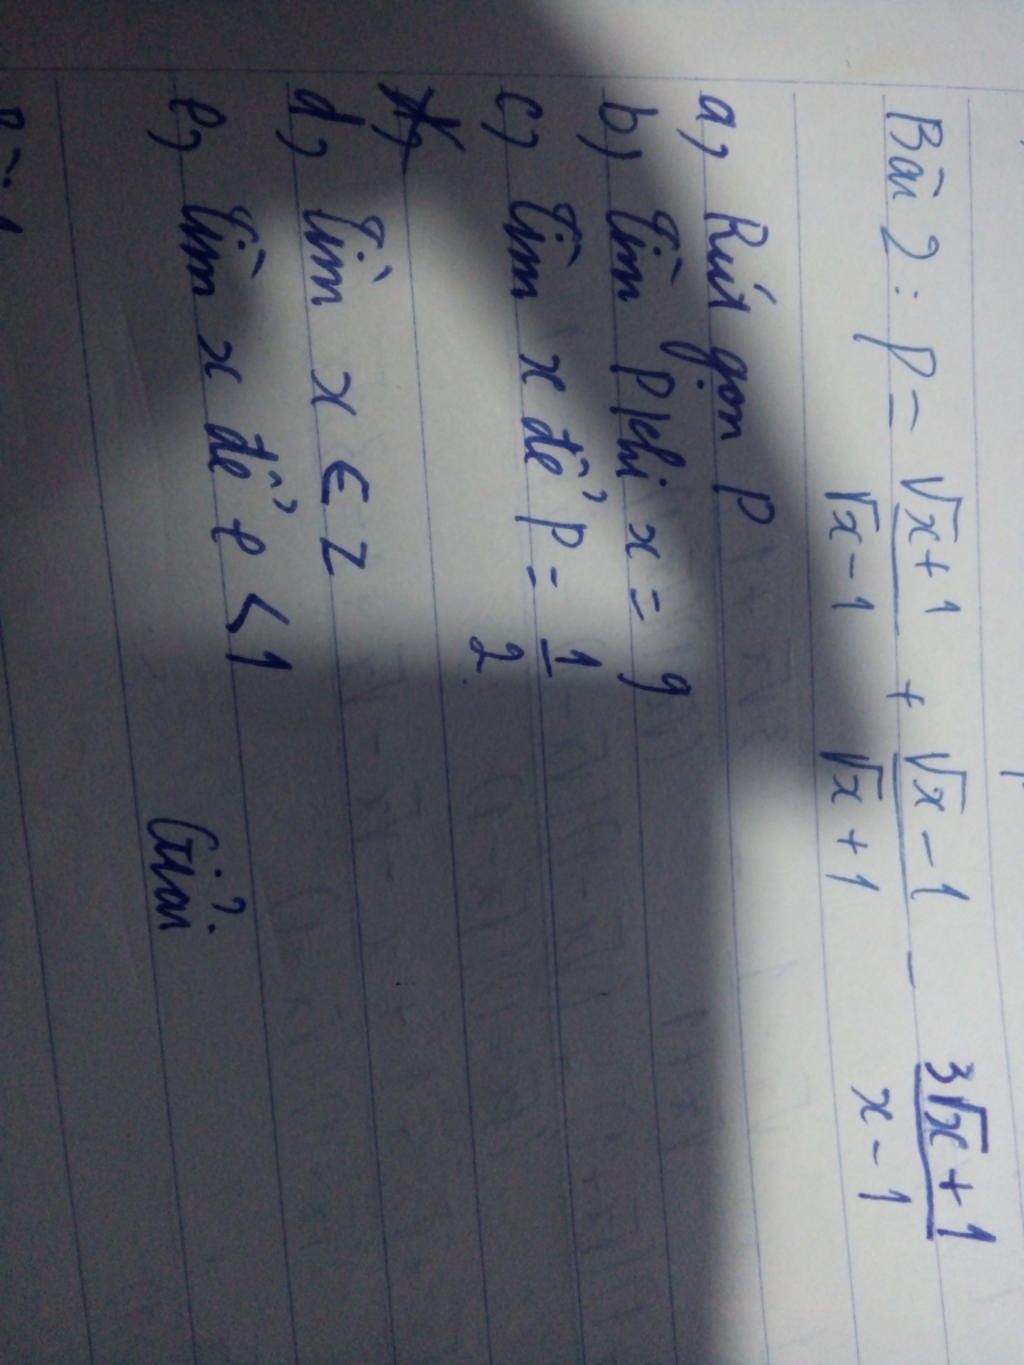 Bài 2: P = √x+1 / √x-1 + √x-1 / √x+1 - 3√x+1 / x-1
a, Rút gọn P
b, Tìm P khi x = 9
c, Tìm x để P = 1/2
d,
d, Tìm x ∈ Z
e, Tìm x để P < 1
Giải